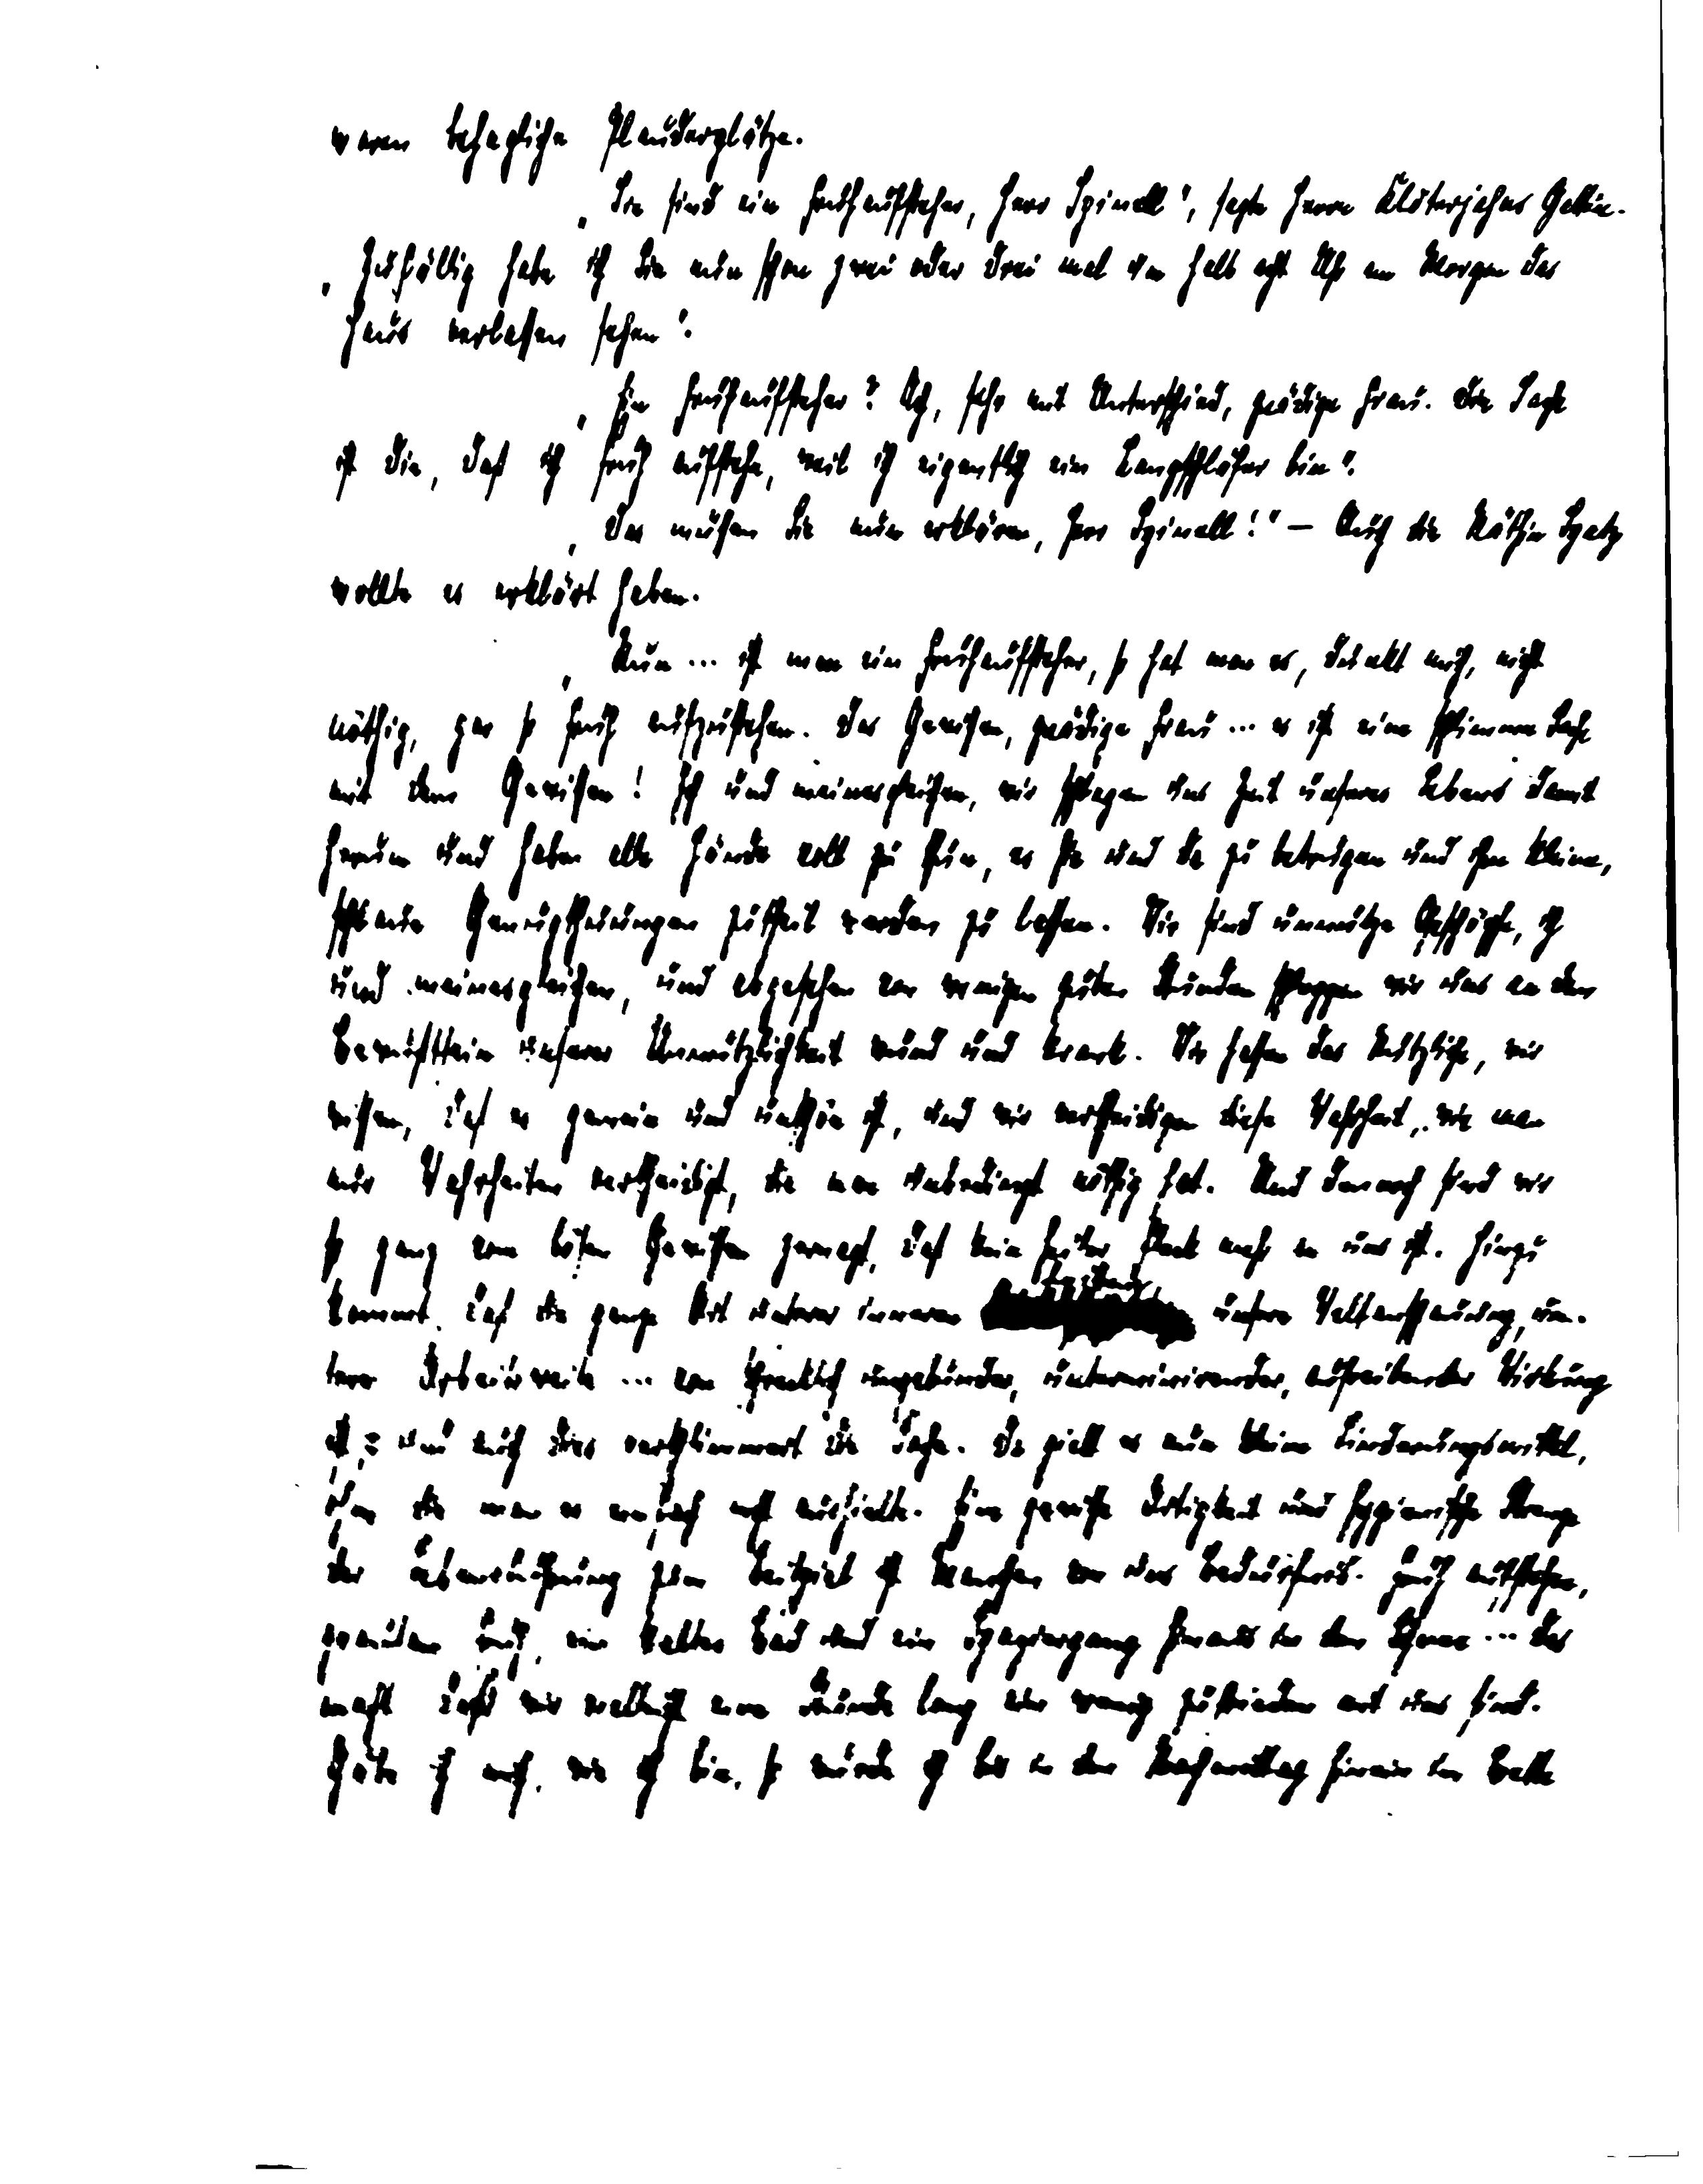 waren behagliche Plauderplätze.
„Sie sind ein Frühaufsteher, Herr Spinell", sagte Herrn Klöterjahns Gattin.
„Zufällig habe ich Sie nun schon zwei oder drei mal um halb acht Uhr am Morgen das
Haus verlassen sehen".
„Ein Frühaufsteher? Ach, sehr mit Unterschied, gnädige Frau. Die Sache
ist die, daß ich früh aufstehe, weil ich eigentlich ein Langschläfer bin".
„Das müssen Sie nun erklären, Herr Spinell!" — Auch die Räthin Spatz
wollte es erklärt haben.
„Nun ... ist man ein Frühaufsteher, so hat man es, dünkt mich, nicht
nöthig, gar so früh aufzustehen. Das Gewissen, gnädige Frau ... es ist eine schlimme Sache
mit dem Gewissen! Ich und meinesgleichen, wir schlagen uns Zeit unseres Lebens damit
herum und haben alle Hände voll zu thun, es hie und da zu betrügen und ihm kleine,
schlaue Genugthuungen zutheil werden zu lassen. Wir sind unnütze Geschöpfe, ich
und meinesgleichen, und abgesehen von wenigen guten Stunden schleppen wir uns an dem
Bewußtsein unserer Unnützlichkeit wund und krank. Wir hassen das Nützliche, wir
wissen, daß es gemein und unschön ist, und wir vertheidigen diese Wahrheit, wie man
nur Wahrheiten vertheidigt, die man unbedingt nöthig hat. Und dennoch sind wir
so ganz vom bösen Gewissen zernagt, daß kein heiler Fleck mehr an uns ist. Hinzu
kommt, daß die ganze Art unserer inneren Existenz, unsere Weltanschauung, un-
sere Arbeitsweise ... von schrecklich ungesunder, unterminirender, aufreibender Wirkung
ist, und auch dies verschlimmert die Sache. Da giebt es nun kleine Linderungsmittel,
ohne die man es einfach nicht aushielte. Eine gewisse Artigkeit und hygienische Strenge
der Lebensführung zum Beispiel ist Manchen von uns Bedürfnis. Früh aufstehen,
grausam früh, ein kaltes Bad und ein Spaziergang hinaus in den Schnee ... Das
macht, daß wir vielleicht eine Stunde lang ein wenig zufrieden mit uns sind.
Gäbe ich mich, wie ich bin, so würde ich bis in den Nachmittag hinein im Bette